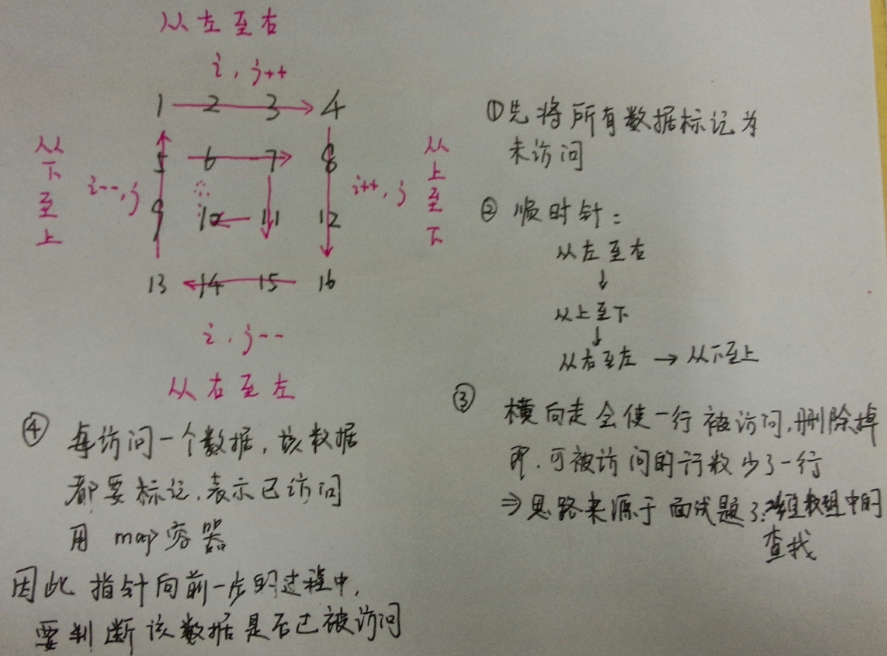 从左至右
i, j++
1 2 3 4
5 6 7 8
9 10 11 12
13 14 15 16
从下至上
i--, j
i++, j
从上至下
i, j--
从右至左
①先将所有数据标记为
未访问
② 顺时针：
从左至右
↓
从上至下
↓
从右至左 → 从下至上
③
横向走会使一行被访问，删除掉
即，可被访问的行数少了一行
⇒思路来源于面试题3：二维数组中的
查找
④ 每访问一个数据，该数据
都要标记，表示已访问
用 map容器
因此 指针向前一步的过程中，
要判断该数据是否已被访问